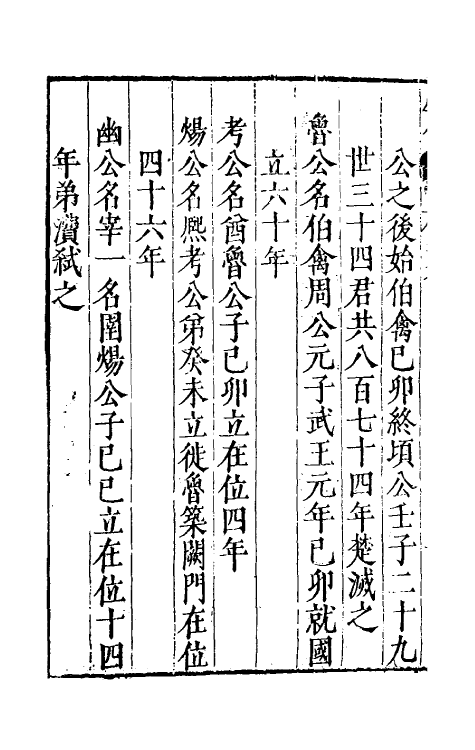 公之後始伯禽己卯終頃公壬子二十九
世三十四君共八百七十四年楚滅之
魯公名伯禽周公元子武王元年己卯就國
立六十年
考公名酋魯公子己卯立在位四年
煬公名熈考公弟癸未立徙魯築闕門在位
四十六年
幽公名宰一名圉煬公子己巳立在位十四
年弟㵒弒之